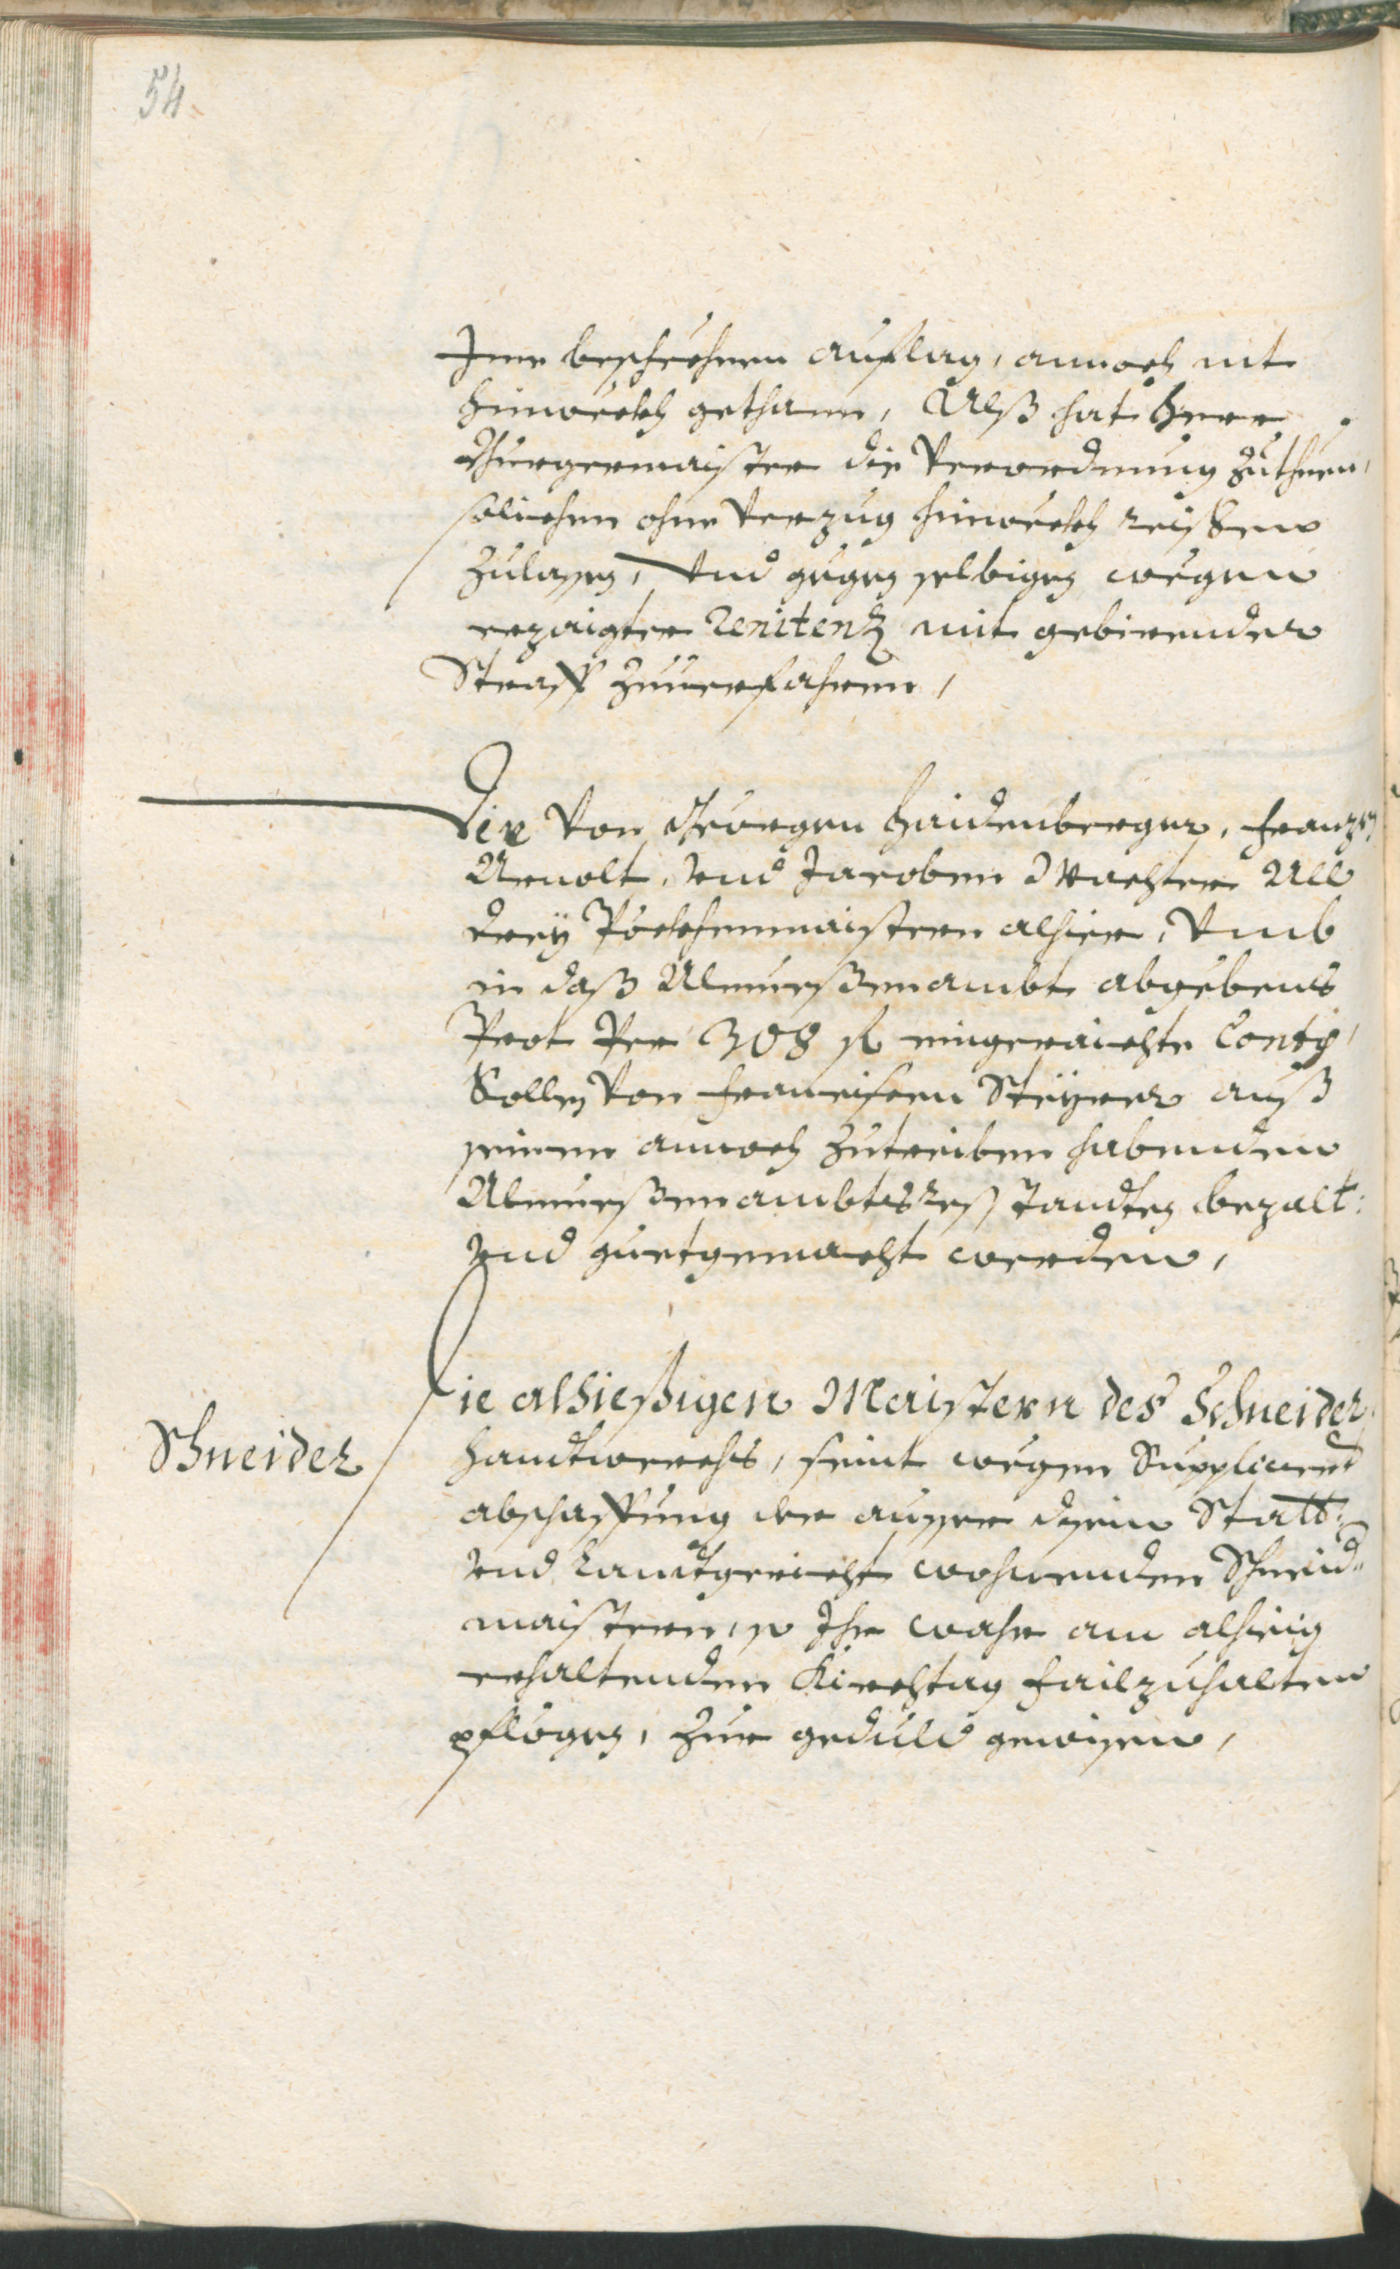 54.
Ime beschehenen auflag, annoch nit
hinwekh gethann, Alß hat Herr
Burgermaister die Verordnung zuthuen,
solichen ohne Verzug hinwekh reissen
zulassen, Vnd gegen selbigen wegen
erzaigter Renitenz mit gebirender
Straff zuuerfahren,
Die Von Georgen Haidenberger, Franzen
Arnolt, vnd Jacoben Wachter All
drey Pöckhenmaistern alhier, Vmb
in daß Almueßenambt abgebens
Prot Per 308 fl eingeraichte Conti,
Sollen Von Francisen Steyrer auß
seinem annoch zutreiben habenden
Almueßenambts Resstandten bezalt:
vnd guetgemacht werden,
Schneider
Die alhießigen Maistern des Schneider
handtwerchs, seint wegen Supplicierten
abschaffung der ausser dessen Statt:
vnd Landtgericht wohnenden Schneid=
maistern, so Ihr wahr am alhieig
erhaltenden Kirchtag failzuhalten
pflegen, zur geduld gewisen,